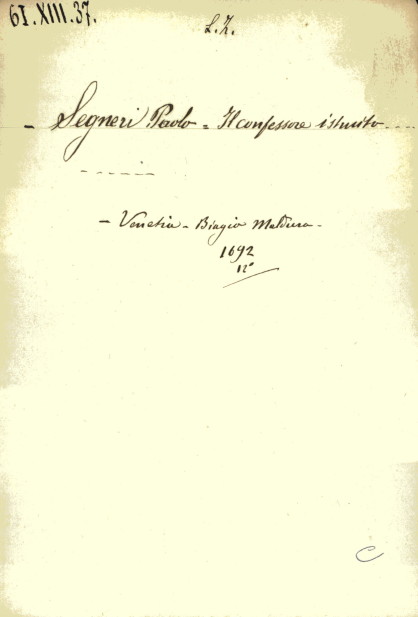 61.XIII.37.
L.Z.
- Segneri Paolo = Il confessore istruito ....
- - - - - -
- Venetia - Biagio Maldura -
1692
12°
C